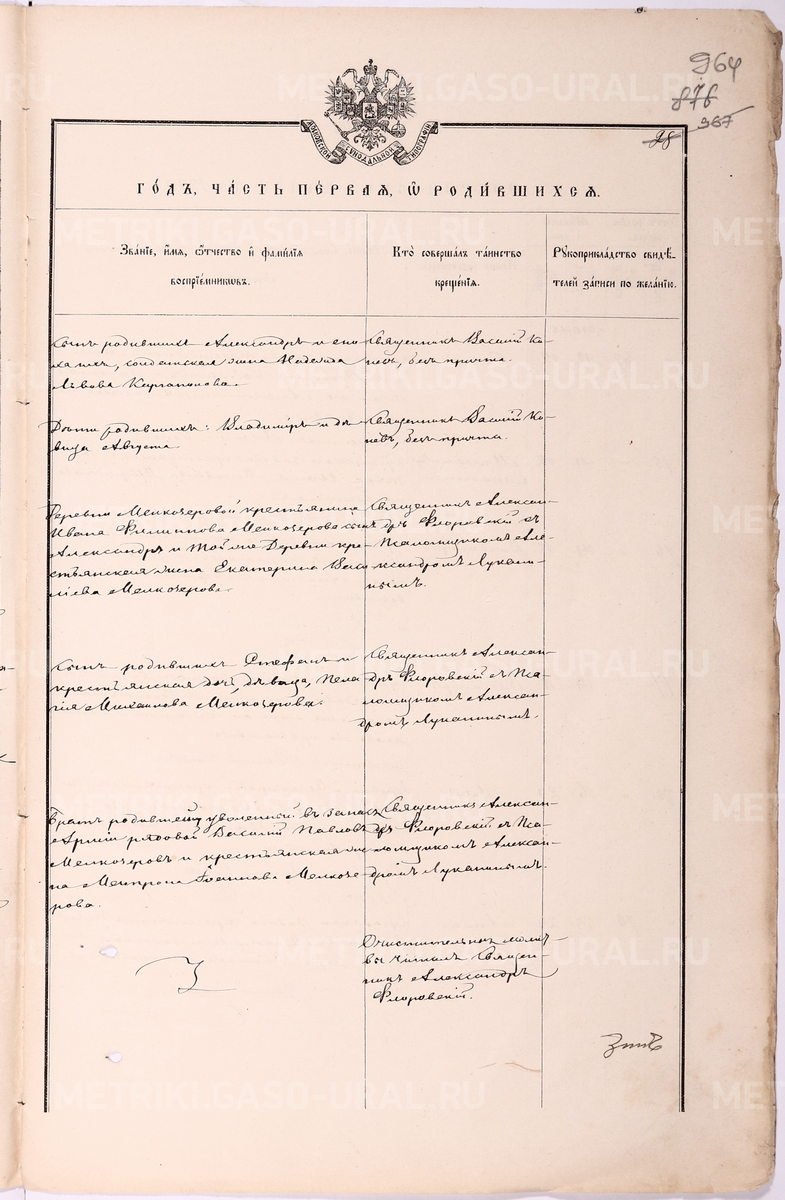 964
876
967
28
СѴНОДАЛЬНОЙ
ТИПОГРАФІИ
ГО́ДЪ, ЧА́СТЬ ПЕ́РВАЯ, Ѽ РОДИ́ВШИХСѦ.
Зва́нїе, и҆́мя, ѻ҆́тчество и҆ фами́лїѧ
воспрїе́мниковъ.
Кто̀ соверша́лъ та́инство
креще́нїѧ.
Рꙋкоприкла́дство свидѣ́-
телей за́писи по жела́нїю.
Сынъ родившихъ Александръ и
солдатская жена Надежда
Львова Каргаполова.
Священникъ Василій Ко-
невъ, безъ причта.
Дѣти родившихъ: Владиміръ и дѣ-
вица Августа.
Священникъ Василій Ко-
невъ, безъ причта.
Деревни Мелкозеровой крестьянина
Ивана Филиппова Мелкозерова сынъ
Александръ и той же деревни кре-
стьянская жена Екатерина Васи-
ліева Мелкозерова.
Священникъ Алексан-
дръ Флоровскій съ
Псаломщикомъ Але-
ксандромъ Луканы-
нымъ.
Сынъ родившихъ Стефанъ и
крестьянская дочь, дѣвица, Пела-
гія Михаилова Мелкозерова.
Священникъ Алексан-
дръ Флоровскій съ Пса-
ломщикомъ Алексан-
дромъ
Братъ родившей уволенный въ запасъ
Арміи рядовой Василій Павловъ
Мелкозеровъ и крестьянская же-
на Матрона Іоаннова Мелкозе-
рова.
Священникъ Алексан-
дръ Флоровскій съ Пса-
ломщикомъ Алексан-
дромъ
Очистительныя молит-
вы читалъ Священ-
никъ Александръ
Флоровскій.
METRIKI.GASO-URAL.RU